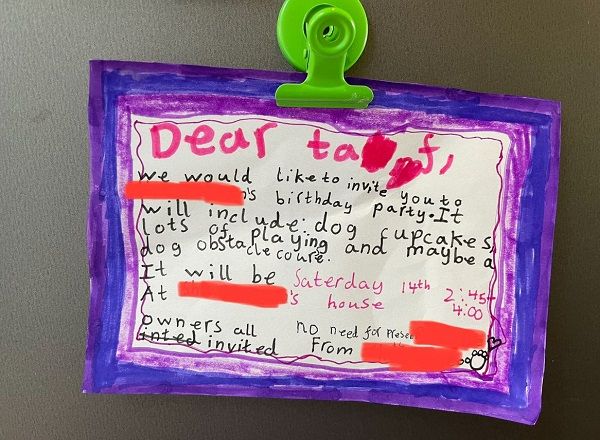 Dear
We would like to invite you to
's birthday party. It
will include: dog cupcakes,
lots of playing and maybe a
dog obstacle coure.
It will be Saterday 14th 2:45-
4:00
At 's house
owners all
inted invited
no need for
From